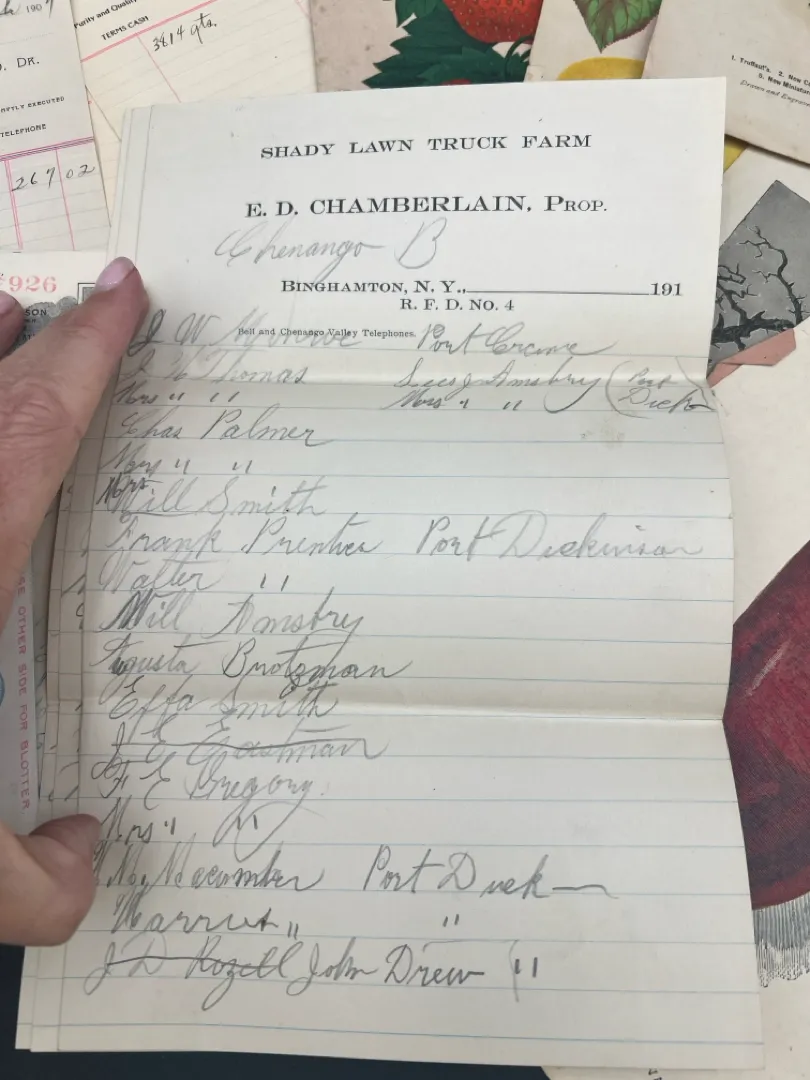 190
Purity and Quality
TERMS CASH
3814 qts.
DR.
PTLY EXECUTED
TELEPHONE
267 02
926
SON
1. Truffaut's. 2. New
5. New Miniature
Drawn and Engraved
SHADY LAWN TRUCK FARM
E. D. CHAMBERLAIN, PROP.
Chenango B
BINGHAMTON, N. Y., 191
R. F. D. NO. 4
Bell and Chenango Valley Telephones.
J W Monroe Port Crane
Thomas Amsbry (Port
Mrs " " Mrs " " Dick
Chas Palmer
Mary " "
Mrs
Will Smith
Frank Prentice Port Dickinson
Walter "
Will Amsbry
Agusta Brotzman
Effa Smith
J E Eastman
F E Gregory
Mrs " "
Macumber Port Dick
Harriet " "
J D Rozell John Drew "
SEE OTHER SIDE FOR BLOTTER